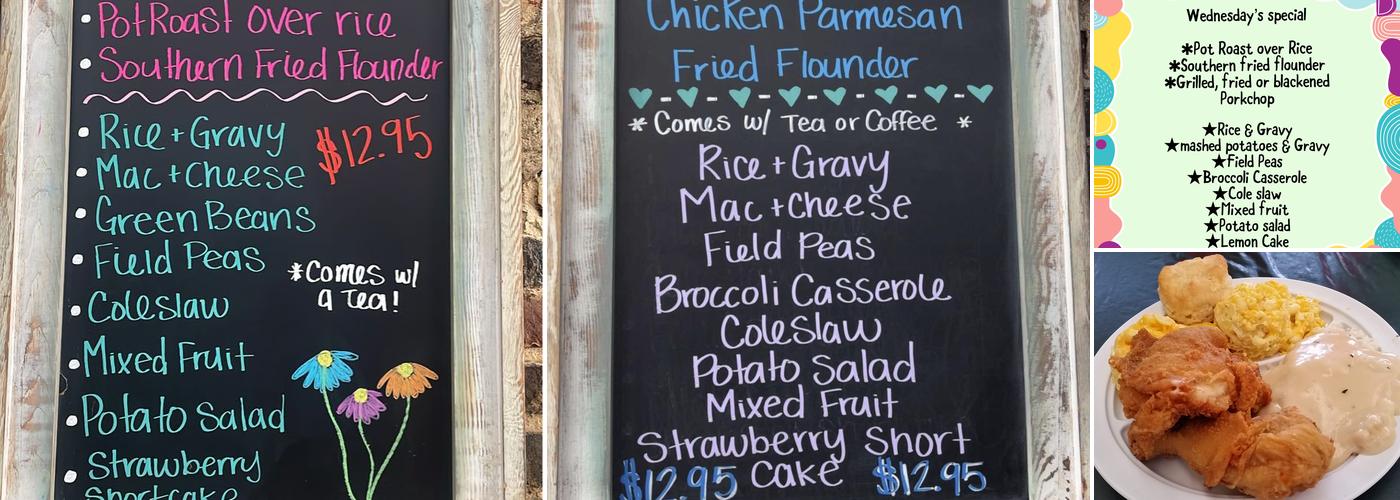 PotRoast over rice
Southern Fried Flounder
Rice + Gravy
$12.95
Mac + Cheese
Green Beans
Field Peas
*Comes w/
a Tea!
Coleslaw
Mixed Fruit
Potato Salad
Strawberry
Shortcake
Chicken Parmesan
Fried Flounder
* Comes w/ Tea or Coffee *
Rice + Gravy
Mac + Cheese
Field Peas
Broccoli Casserole
Coleslaw
Potato Salad
Mixed Fruit
Strawberry Short
$12.95 Cake $12.95
Wednesday's special
*Pot Roast over Rice
*Southern fried flounder
*Grilled, fried or blackened
Porkchop
★Rice & Gravy
★mashed potatoes & Gravy
★Field Peas
★Broccoli Casserole
★Cole slaw
★Mixed fruit
★Potato salad
★Lemon Cake